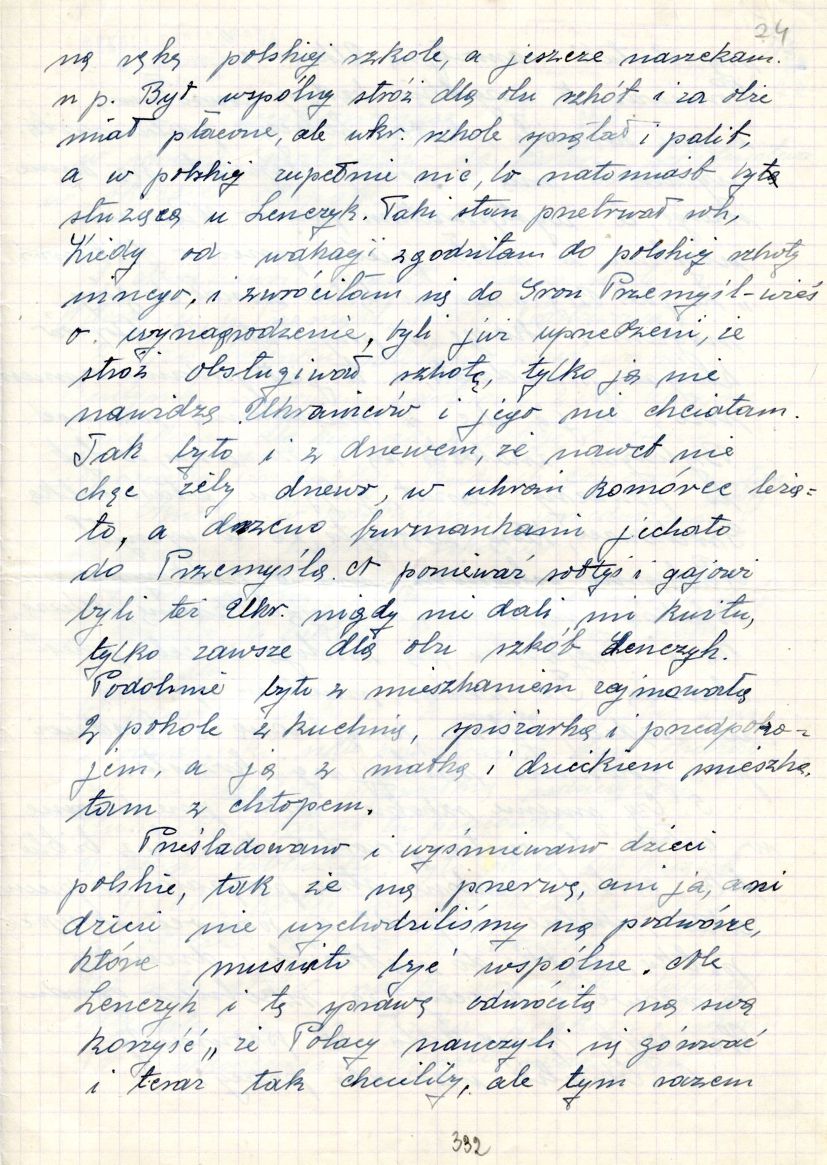 24
ną ręką polskiej szkole, a jeszcze narzekam.
n p. Był wspólny stróż dla obu szkół i za obie
miał płacone, ale ukr. szkole sprzątał i palił,
a w polskiej zupełnie nic, bo natomiast była
służącą u Lenczyk. Taki stan przetrwał rok,
Kiedy od wakacji zgodziłam do polskiej szkoły
innego, i zwróciłam się do Gron Przemyśl-wieś
o wynagrodzenie, byli już uprzedzeni, że
stróż obsługiwał szkołę, tylko ja nie
nawidzą Ukraińców i jego nie chciałam.
Tak było i z drzewem, że nawet nie
chcę żeby drzewo, w ukraiń komórce leża=
ło, a drzewo furmankami jechało
do Przemyśla. A ponieważ sołtys i gajowi
byli też Ukr. nigdy nie dali mi kwitu,
tylko zawsze dla obu szkół Lenczyk.
Podobnie było z mieszkaniem zajmowała
2 pokole z kuchnią, spiżarką i przedpoko=
jem, a ja z matką i dzieckiem mieszka,
łam z chłopem.
Prześladowano i wyśmiewano dzieci
polskie, tak że na przerwę, ani ja, ani
dzieci nie wychodziliśmy na podwórze,
które musiało być wspólne. Ale
Lenczyk i tą sprawę odwróciła na swą
korzyść „ że Polacy nauczyli się górować
i teraz tak chcieliby, ale tym razem
332